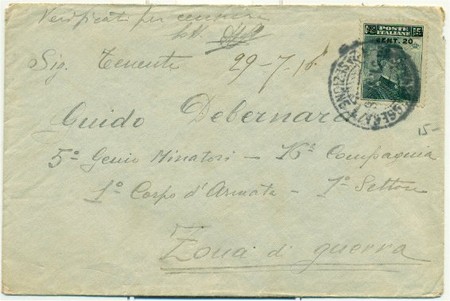 Verificato per censura
POSTE ITALIANE
CENT. 20
Sig. Tenente 29-7-16
Guido Debernardi
5° Genio Minatori - Compagnia
1° Corpo d'Armata - 1° Settore
Zona di guerra
15-